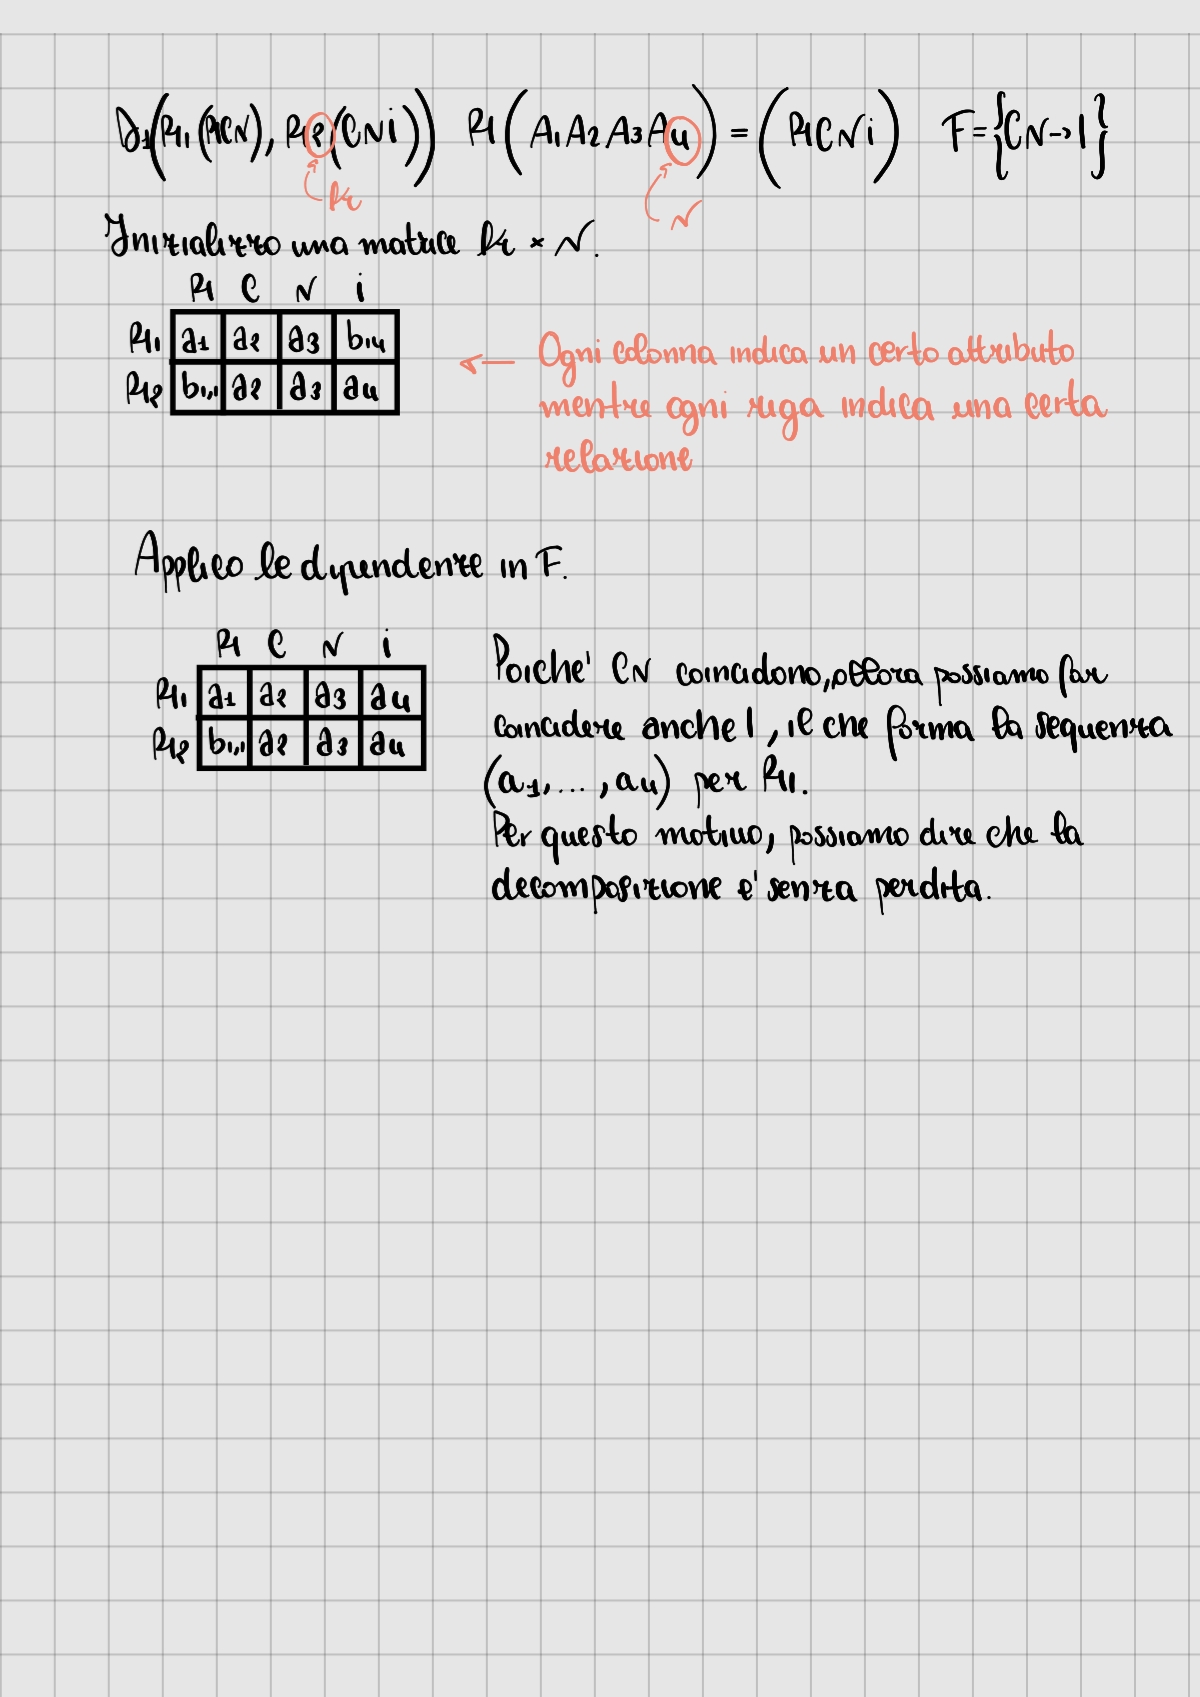 D1(R1(RCN), R2(CNi)) R(A1A2A3A4) = (RCNi) F={CN→I}
k N
Inizializzo una matrice k × N.
R C N i
R1 a1 a2 a3 b14
R2 b1,1 a2 a3 a4
← Ogni colonna indica un certo attributo
mentre ogni riga indica una certa
relazione
Applico le dipendenze in F.
R C N i
R1 a1 a2 a3 a4
R2 b1,1 a2 a3 a4
Poiche' CN coincidono, allora possiamo far
coincidere anche I, il che forma la sequenza
(a1,...,a4) per R1.
Per questo motivo, possiamo dire che la
decomposizione e' senza perdita.